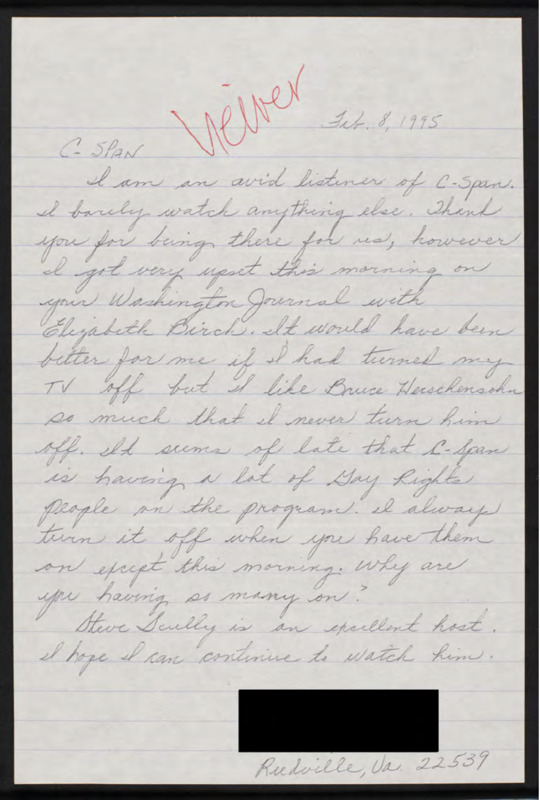 Viewer
Feb. 8, 1995
C-SPAN
I am an avid listener of C-Span.
I barely watch anything else. Thank
you for being there for us, however
I got very upset this morning on
your Washington Journal with
Elizabeth Birch. It would have been
better for me if I had turned my
TV off but I like Bruce Herschensohn
so much that I never turn him
off. It seems of late that C-Span
is having a lot of Gay Rights
people on the program. I always
turn it off when you have them
on except this morning. Why are
you having so many on?
Steve Scully is an excellent host.
I hope I can continue to watch him.
Reedville, Va. 22539